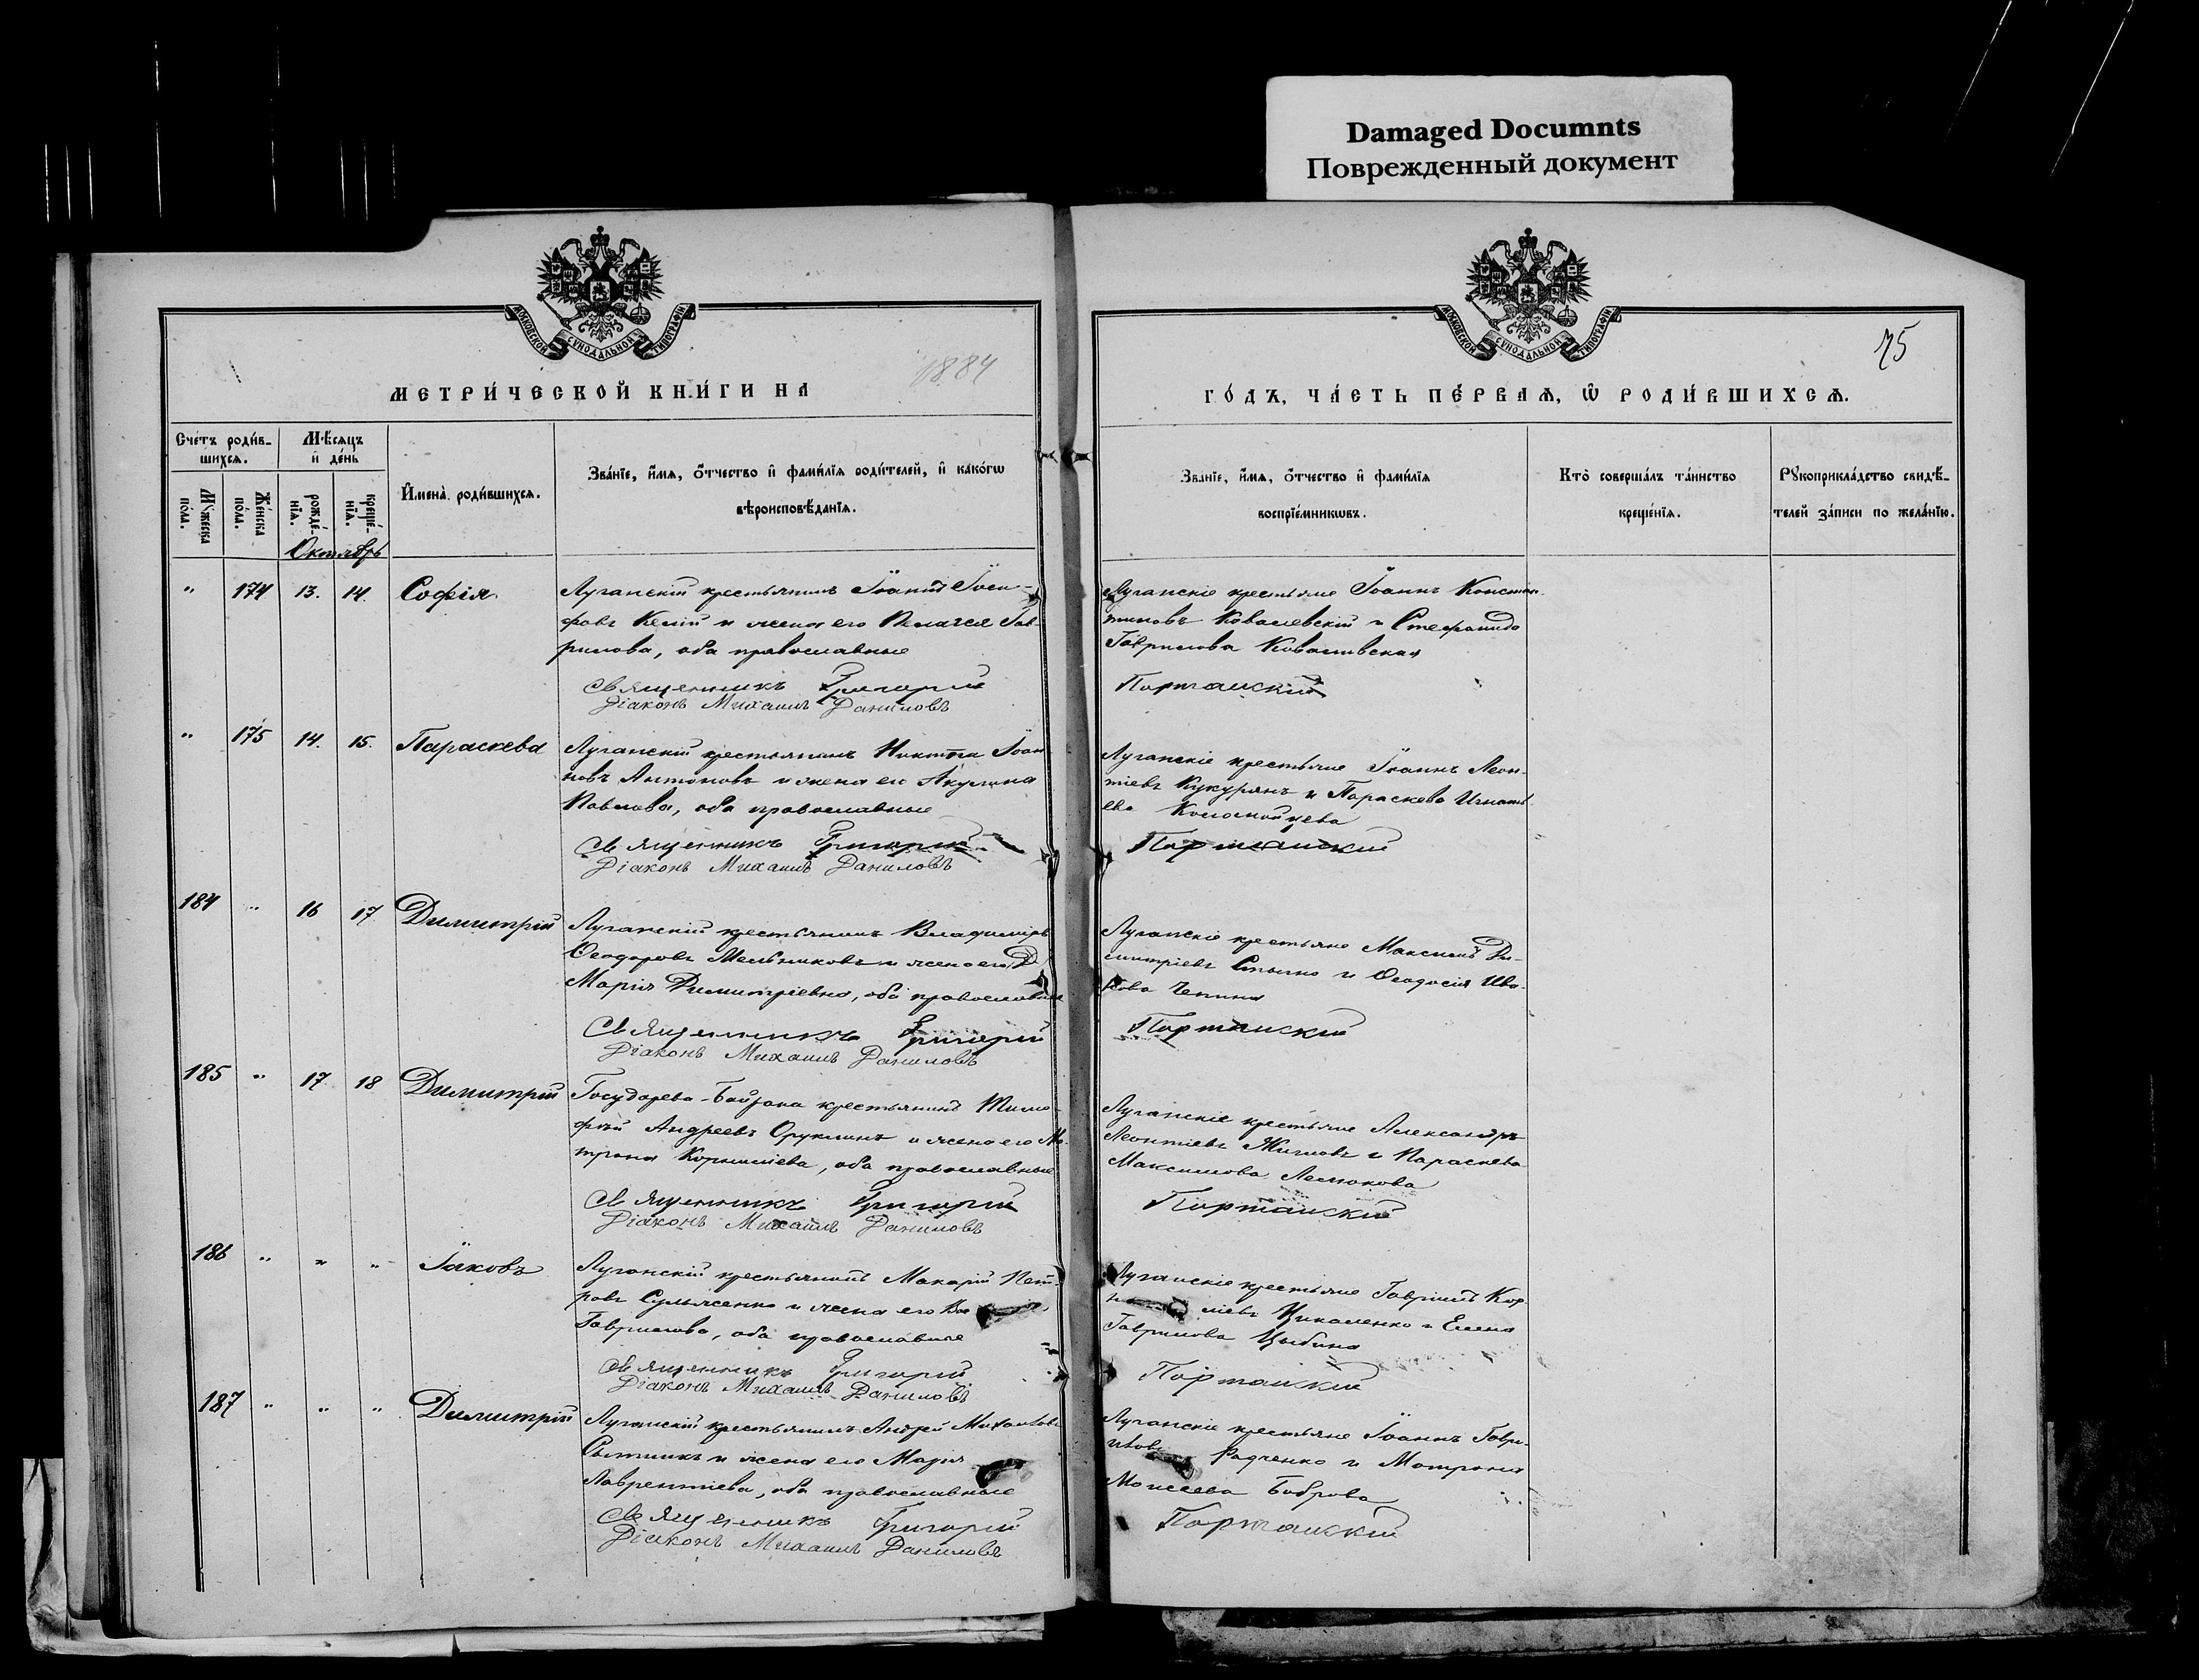 Damaged Documnts
Поврежденный документ
МОСКОВСКОЙ СѴНОДАЛЬНОЙ ТИПОГРАФІИ
МОСКОВСКОЙ СѴНОДАЛЬНОЙ ТИПОГРАФІИ
1884
75
МЕТРИ́ЧЕСКОЙ КНИ́ГИ НА
ГО́ДЪ, ЧА́СТЬ ПЕ́РВАѦ, Ѡ҆ РОДИ́ВШИХСѦ.
Сче́тъ роди́в-
шихсѧ.
Мꙋжеска по́ла.
Же́нска по́ла.
Мѣ́сѧцъ
и҆ де́нь
рожде́-
нїѧ.
креще́-
нїѧ.
Октябрь
И҆мена̀ роди́вшихсѧ.
Зва́нїе, и҆́мѧ, ѻ҆́тчество и҆ фами́лїѧ роди́телей, и҆ како́гѡ
вѣроисповѣ́данїѧ.
Зва́нїе, и҆́мѧ, ѻ҆́тчество и҆ фами́лїѧ
воспрїе́мникѡвъ.
Кто̀ соверша́лъ та́инство
креще́нїѧ.
Рꙋкоприкла́дство свидѣ́-
телей за́писи по жела́нїю.
" 174 13. 14. Софія
Луганскій крестьянинъ Іоаннъ Іоси-
фовъ и жена его Пелагея Гав-
рилова, оба православные
Священникъ Григорій
Діаконъ Михаилъ Даниловъ
Луганскіе крестьяне Іоаннъ Констан-
тиновъ Ковалевскій и Стефанида
Гаврилова Ковалевская
Портанскій
" 175 14. 15. Параскева
Луганскій крестьянинъ Никита Іоан-
новъ Антоновъ и жена его Акулина
Павлова, оба православные
Священникъ Григорій
Діаконъ Михаилъ Даниловъ
Луганскіе крестьяне Іоаннъ Леон-
тіевъ Кукурянъ и Параскева Игнать-
ева
Портанскій
184 " 16 17 Димитрій
Луганскій крестьянинъ Владиміръ
Ѳеодоровъ Мельниковъ и жена его
Марія Димитріевна, оба православные
Священникъ Григорій
Діаконъ Михаилъ Даниловъ
Луганскіе крестьяне Максимъ Ди-
митріевъ и Ѳеодосія Ива-
нова Чепина
Портанскій
185 " 17 18 Димитрій
Государева-Байрака крестьянинъ Тимо-
фей Андреевъ и жена его Ма-
трона Корниліева, оба православные
Священникъ Григорій
Діаконъ Михаилъ Даниловъ
Луганскіе крестьяне Александръ
Леонтіевъ и Параскева
Максимова
Портанскій
186 " " " Іаковъ
Луганскій крестьянинъ Макарій Пет-
ровъ и жена его
Гаврилова, оба православные
Священникъ Григорій
Діаконъ Михаилъ Даниловъ
Луганскіе крестьяне Гавріилъ Кор-
ліевъ Цикаленко и Елена
Гаврилова Цыбина
Портанскій
187 " " " Димитрій
Луганскій крестьянинъ Андрей Михаиловъ
Сытникъ и жена его Марія
Лаврентіева, оба православные
Священникъ Григорій
Діаконъ Михаилъ Даниловъ
Луганскіе крестьяне Іоаннъ Гаври-
иловъ Радченко и Матрона
Моисеева Боброва
Портанскій